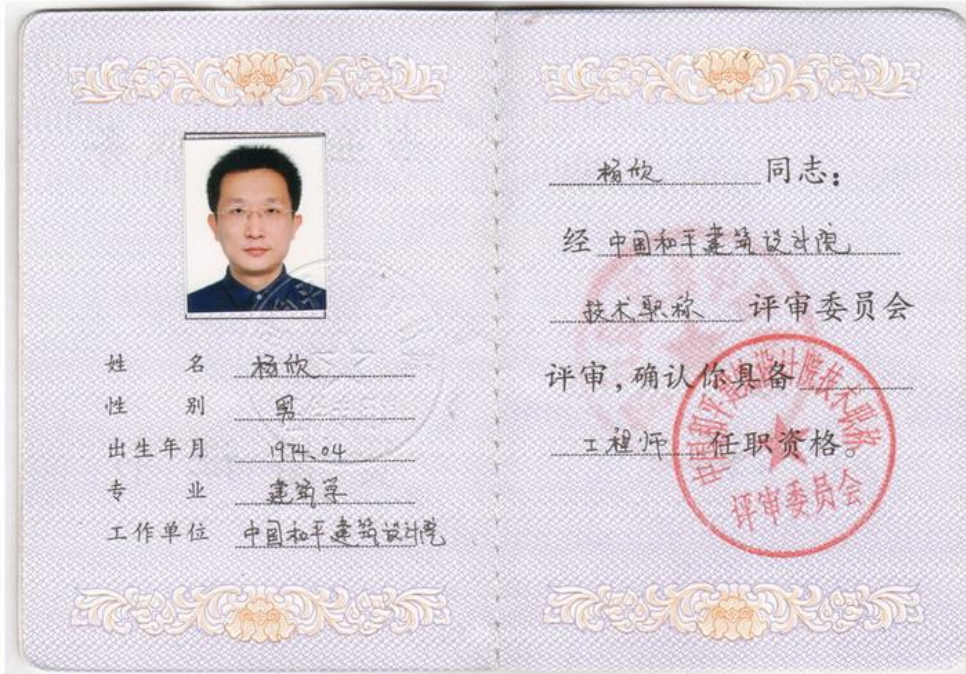 姓名 杨欣
性别 男
出生年月 1974.04
专业 建筑学
工作单位 中国和平建筑设计院
杨欣 同志：
经 中国和平建筑设计院
技术职称 评审委员会
评审，确认你具备
工程师 任职资格。
中国和平建筑设计院技术职称
评审委员会